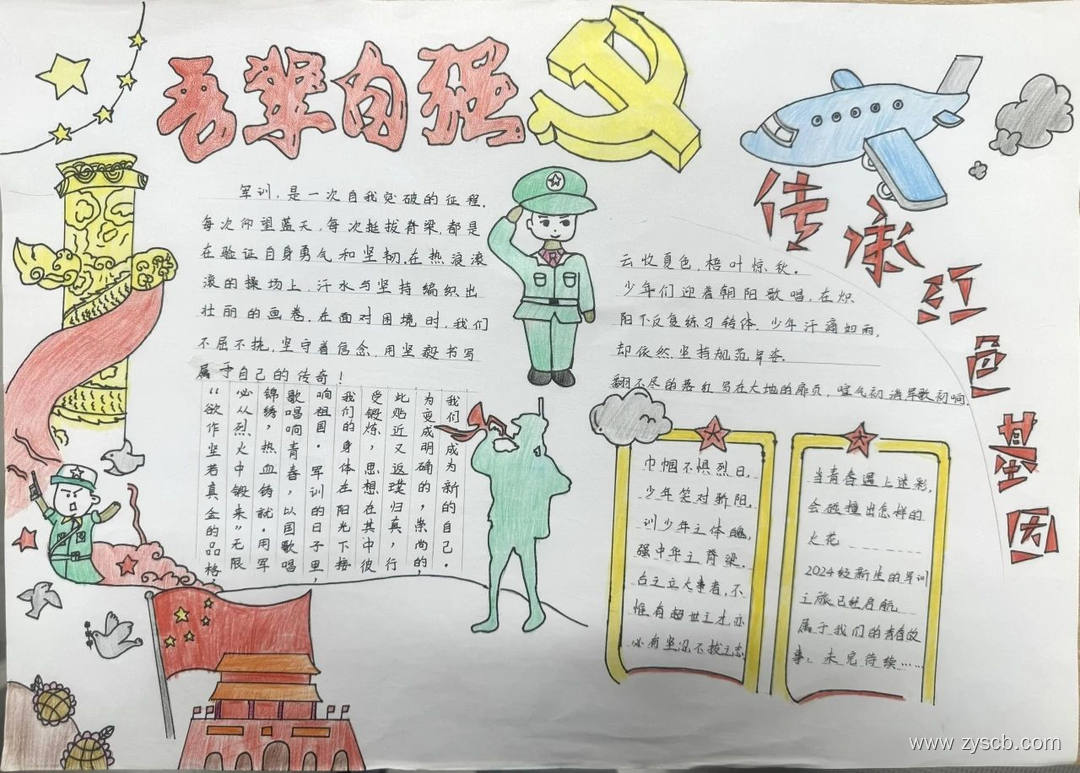 吾辈自强
传承红色基因
军训,是一次自我突破的征程。
每次仰望蓝天,每次挺拔脊梁,都是
在验证自身勇气和坚韧。在热浪滚
滚的操场上,汗水与坚持编织出
壮丽的画卷。在面对困境时,我们
不屈不挠,坚守着信念,用坚毅书写
属于自己的传奇!
我们成为新的自己。
为变成明确的,崇尚的,
此处近又返璞归真,行
受锻炼,思想在其中彼
我们身体在阳光下接
响祖国。军训的日子里,
歌唱响青春,以国歌唱
锦绣,热血铸就。用军
必从烈火中锻来”无限
“欲作坚若真金的品格
云收夏色,梧叶惊秋。
少年们迎着朝阳歌唱,在炽
阳下反复练习转体,少年汗滴如雨,
却依然坚持规范军姿。
翻不尽的落红写在大地的扉页,暄气初消军歌初响。
巾帼不惧烈日,
少年笑对骄阳,
训少年之体魄,
强中华之脊梁。
古之立大事者,不
惟有超世之才亦
必有坚忍不拔之志
当青春遇上迷彩,
会碰撞出怎样的
火花
2024级新生的军训
之旅已经启航
属于我们的青春故
事,未完待续……
www.zyscb.com